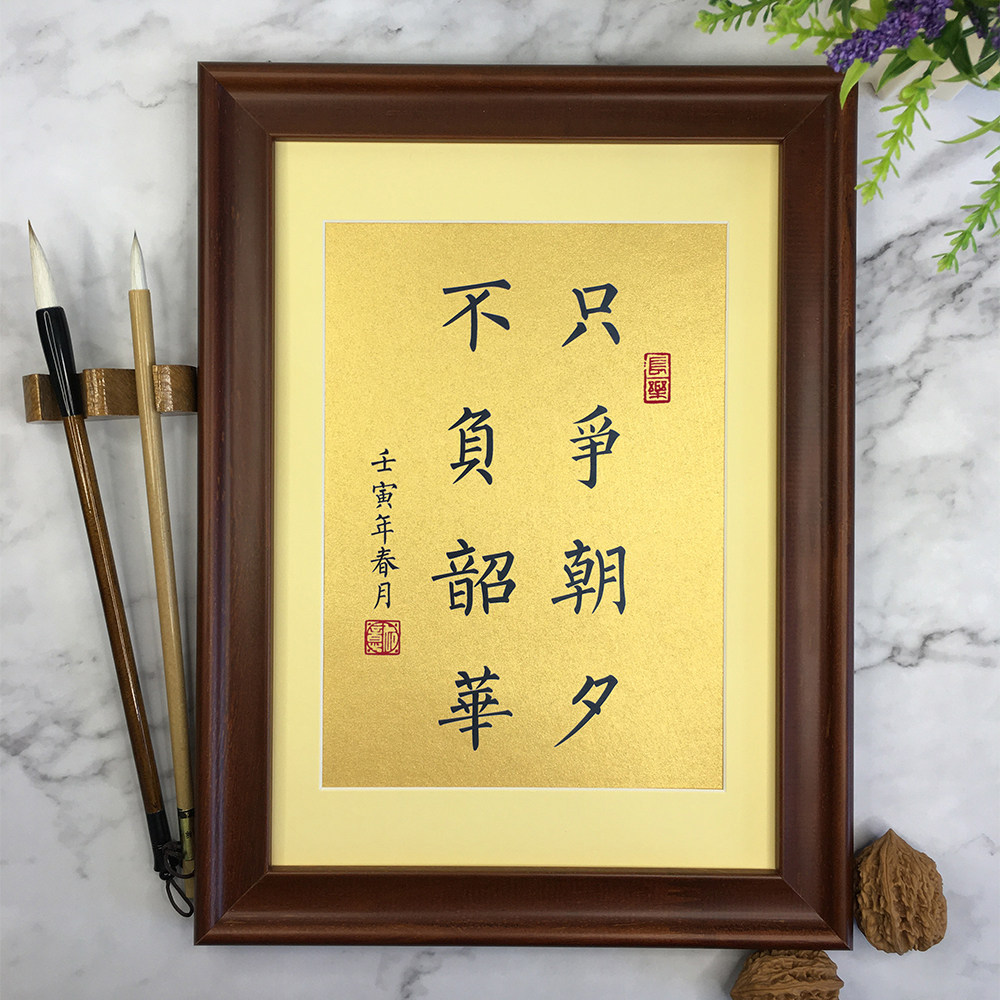 只爭朝夕
不負韶華
壬寅年春月
長樂